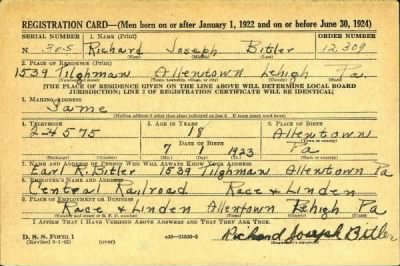 REGISTRATION CARD—(Men born on or after January 1, 1922 and on or before June 30, 1924)
SERIAL NUMBER 1. NAME (Print) ORDER NUMBER
N 305 Richard Joseph Bitler 12,309
(First) (Middle) (Last)
2. PLACE OF RESIDENCE (Print)
1539 Tilghman Allentown Lehigh Pa.
(Number and street) (Town, township, village, or city) (County) (State)
[THE PLACE OF RESIDENCE GIVEN ON THE LINE ABOVE WILL DETERMINE LOCAL BOARD
JURISDICTION; LINE 2 OF REGISTRATION CERTIFICATE WILL BE IDENTICAL]
3. MAILING ADDRESS
Same
[Mailing address if other than place indicated on line 2. If same insert word same]
4. TELEPHONE 5. AGE IN YEARS 6. PLACE OF BIRTH
24575 18 Allentown
DATE OF BIRTH (Town or county)
7 1 1923 Pa
(Mo.) (Day) (Yr.) (State or country)
7. NAME AND ADDRESS OF PERSON WHO WILL ALWAYS KNOW YOUR ADDRESS
Earl R. Bitler 1539 Tilghman Allentown Pa
8. EMPLOYER'S NAME AND ADDRESS
Central Railroad Race & Linden
9. PLACE OF EMPLOYMENT OR BUSINESS
Race & Linden Allentown Lehigh Pa
(Number and street or R. F. D. number) (Town) (County) (State)
I AFFIRM THAT I HAVE VERIFIED ABOVE ANSWERS AND THAT THEY ARE TRUE.
D. S. S. Form 1
(over) Richard Joseph Bitler